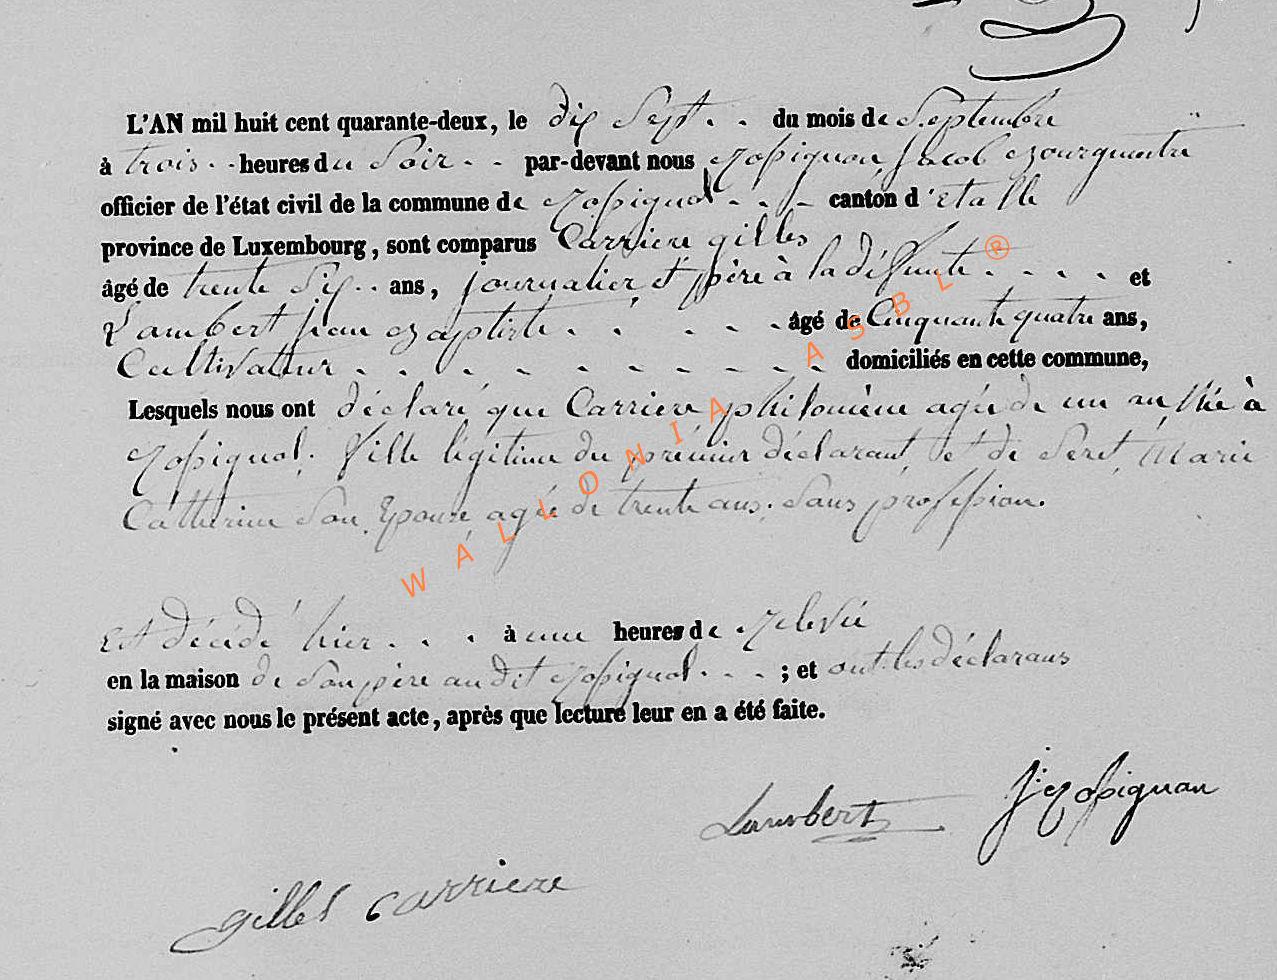 L'AN mil huit cent quarante-deux, le dix Sept . . du mois de Septembre
à trois . . heures du Soir . . par-devant nous Rossignon Jacob Bourguemestre
officier de l'état civil de la commune de Rossignol . . . canton d'Etalle
province de Luxembourg, sont comparus Carriere gilles
âgé de trente Six . . ans, journalier et père à la défunte . . . . et
Lambert Jean Baptiste . . . . . . âgé de Cinquante quatre ans,
Cultivateur . . . . . . . . . . . domiciliés en cette commune,
Lesquels nous ont déclaré que Carriere philomène agée de un an Née à
Rossignol. fille légitime du prémier déclarant, et de Seret, Marie
Catherine Son Epouse, agée de trente ans. Sans profession.
Est décédé hier . . . à une heures de Relevée
en la maison de Son père audit Rossignol . . . ; et ont les déclarans
signé avec nous le présent acte, après que lecture leur en a été faite.
Lambert J. Rossignon
gilles carriere
WALLONIA ASBL ®